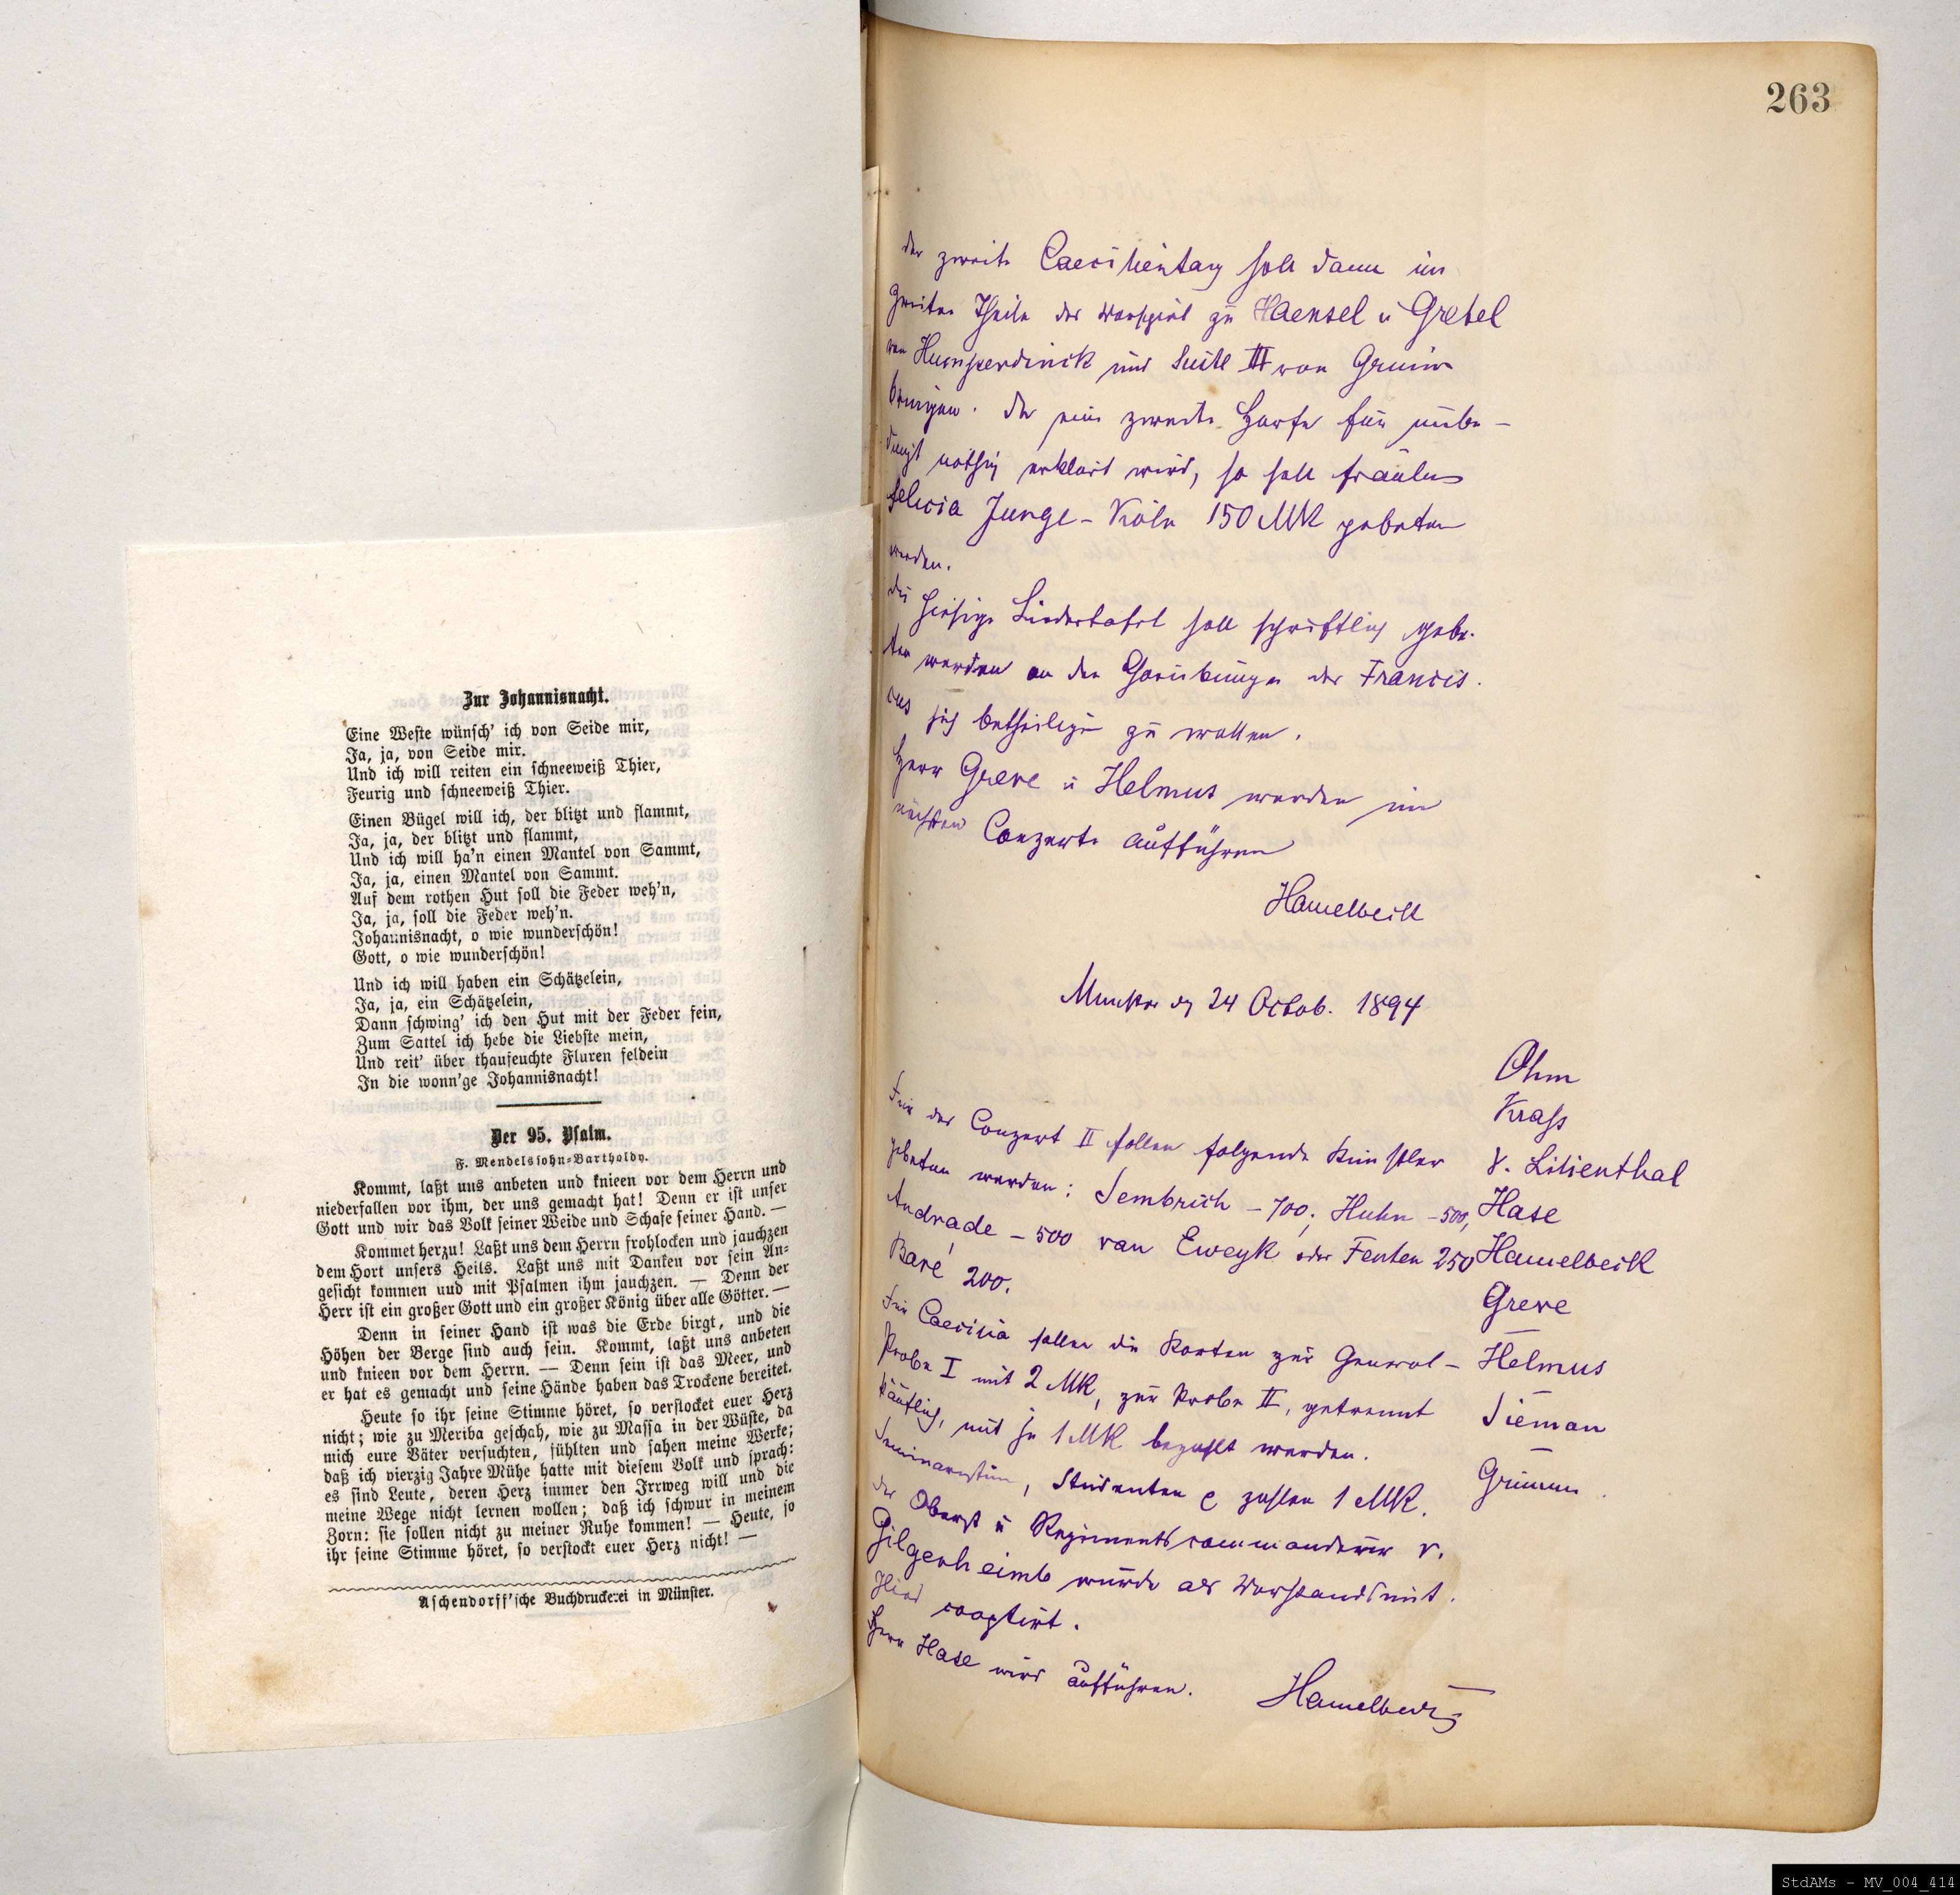 Zur Johannisnacht.
Eine Weste wünsch' ich von Seide mir,
Ja, ja, von Seide mir.
Und ich will reiten ein schneeweiß Thier,
Feurig und schneeweiß Thier.
Einen Bügel will ich, der blitzt und flammt,
Ja, ja, der blitzt und flammt,
Und ich will ha'n einen Mantel von Sammt,
Ja, ja, einen Mantel von Sammt.
Auf dem rothen Hut soll die Feder weh'n,
Ja, ja, soll die Feder weh'n.
Johannisnacht, o wie wunderschön!
Gott, o wie wunderschön!
Und ich will haben ein Schätzelein,
Ja, ja, ein Schätzelein,
Dann schwing' ich den Hut mit der Feder fein,
Zum Sattel ich hebe die Liebste mein,
Und reit' über thaufeuchte Fluren feldein
In die wonn'ge Johannisnacht!
Der 95. Psalm.
F. Mendelssohn-Bartholdy.
Kommt, laßt uns anbeten und knieen vor dem Herrn und
niederfallen vor ihm, der uns gemacht hat! Denn er ist unser
Gott und wir das Volk seiner Weide und Schafe seiner Hand. —
Kommet herzu! Laßt uns dem Herrn frohlocken und jauchzen
dem Hort unsers Heils. Laßt uns mit Danken vor sein An-
gesicht kommen und mit Psalmen ihm jauchzen. — Denn der
Herr ist ein großer Gott und ein großer König über alle Götter. —
Denn in seiner Hand ist was die Erde birgt, und die
Höhen der Berge sind auch sein. Kommt, laßt uns anbeten
und knieen vor dem Herrn. — Denn sein ist das Meer, und
er hat es gemacht und seine Hände haben das Trockene bereitet.
Heute so ihr seine Stimme höret, so verstocket euer Herz
nicht; wie zu Meriba geschah, wie zu Massa in der Wüste, da
mich eure Väter versuchten, fühlten und sahen meine Werke;
daß ich vierzig Jahre Mühe hatte mit diesem Volk und sprach:
es sind Leute, deren Herz immer den Irrweg will und die
meine Wege nicht lernen wollen; daß ich schwur in meinem
Zorn: sie sollen nicht zu meiner Ruhe kommen! — Heute, so
ihr seine Stimme höret, so verstockt euer Herz nicht! —
Aschendorff'sche Buchdruckerei in Münster.
263
der zweite Caecilientag soll dann im
zweiten Theile das Vorspiel zu Haensel u Gretel
von Humperdinck und Suite III von Grimm
bringen. Da eine zweite Harfe für unbe-
dingt nöthig erklärt wird, so soll Fräulein
Felicia Junge - Köln 150 MK gebeten
werden.
Die hiesige Liedertafel soll schriftlich gebe-
ten werden an den Chorübungen des Francis.
cus sich betheiligen zu wollen.
Herr Greve u Helmus werden im
nächsten Conzerte aufführen
Hamelbeck
Munster dn 24 Octob. 1894
Ohm
Krass
v. Lilienthal
Hase
Hamelbeck
Greve
Helmus
Sieman
Grimm.
Für das Conzert II sollen folgende Künstler
gebeten werden: Sembrich - 700; Huhn - 500,
Andrade - 500 van Eweyk oder Fenten 250
Baré 200.
Für Caecilia sollen die Karten zur General-
Probe I mit 2 MK, zur Probe II, getrennt
käuflich, mit je 1 MK bezahlt werden.
Seminaristen, Studenten c zahlen 1 MK.
Der Oberst u Regimentscommandeur v.
Gilgenheimb wurde als Vorstandsmit.
glied cooptirt.
Herr Hase wird aufführen.
Hamelbeck
StdAMs - MV_004_414